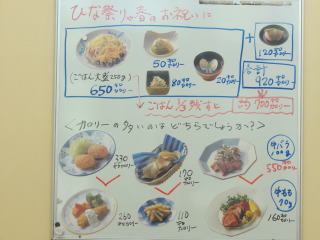 ひな祭りや春のお祝いに
50キロカロリー
+
120キロカロリー
(ごはん大盛250g)
650キロカロリー
80キロカロリー
20キロカロリー
合計
920キロカロリー
→ごはん半残すと
<カロリーの多いのはどちらでしょうか?>
330キロカロリー
170キロカロリー
牛バラ
100g
550キロカロリー
260キロカロリー
110キロカロリー
牛もも
70g
160キロカロリー